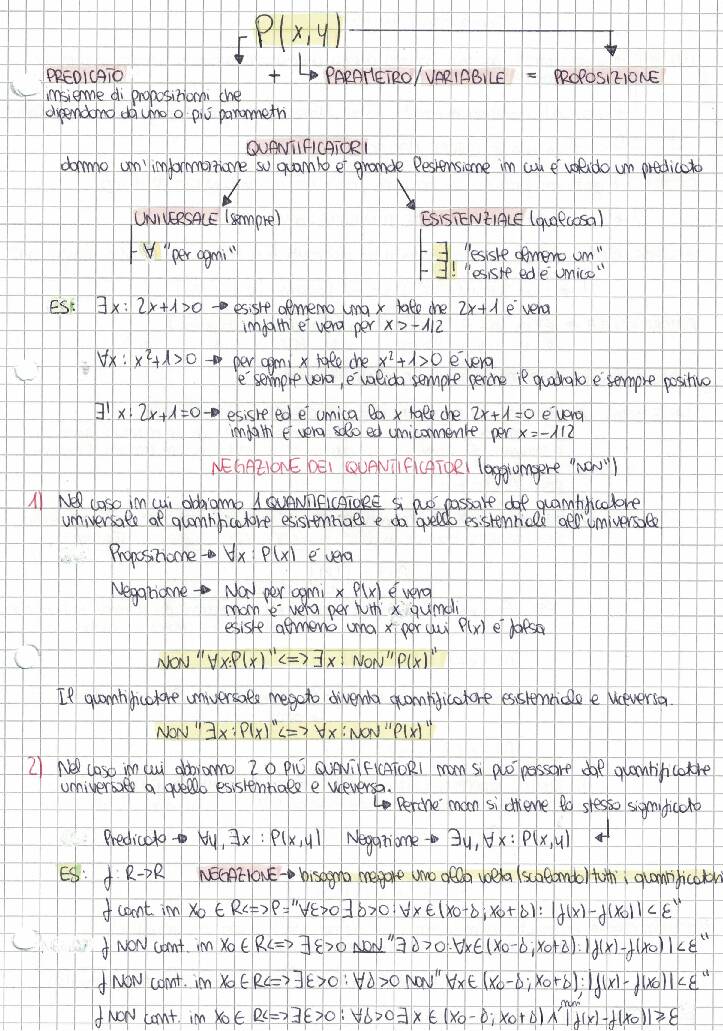 P(x,y)
PREDICATO + PARAMETRO/VARIABILE = PROPOSIZIONE
insieme di proposizioni che
dipendono da uno o più parametri
QUANTIFICATORI
danno un'informazione su quanto è grande l'estensione in cui è valido un predicato
UNIVERSALE (sempre) ESISTENZIALE (qualcosa)
∀ "per ogni" ∃ "esiste almeno un"
∃! "esiste ed è unico"
ES: ∃x: 2x+1>0 → esiste almeno una x tale che 2x+1 è vera
infatti è vera per x>-1/2
∀x: x²+1>0 → per ogni x tale che x²+1>0 è vera
è sempre vera, è valida sempre perché il quadrato è sempre positivo
∃! x: 2x+1=0 → esiste ed è unica la x tale che 2x+1=0 è vera
infatti è vera solo ed unicamente per x=-1/2
NEGAZIONE DEI QUANTIFICATORI (aggiungere "NON")
1) Nel caso in cui abbiamo 1 QUANTIFICATORE si può passare dal quantificatore
universale al quantificatore esistenziale e da quello esistenziale all'universale
Proposizione → ∀x: P(x) è vera
Negazione → NON per ogni x P(x) è vera
non è vera per tutti x quindi
esiste almeno una x per cui P(x) è falsa
NON "∀x:P(x)" <=> ∃x: NON "P(x)"
Il quantificatore universale negato diventa quantificatore esistenziale e viceversa.
NON "∃x: P(x)" <=> ∀x: NON "P(x)"
2) Nel caso in cui abbiamo 2 O PIÙ QUANTIFICATORI non si può passare dal quantificatore
universale a quello esistenziale e viceversa.
↳ Perché non si ottiene lo stesso significato
Predicato → ∀y, ∃x: P(x,y) Negazione → ∃y, ∀x: P(x,y) ↲
ES: f: R->R NEGAZIONE → bisogna negare uno alla volta (scalando) tutti i quantificatori
f cont. in x0 ∈ R <=> P="∀ε>0 ∃δ>0: ∀x∈(x0-δ; x0+δ): |f(x)-f(x0)|<ε"
f NON cont. in x0 ∈ R <=> ∃ε>0 NON "∃δ>0: ∀x∈(x0-δ; x0+δ): |f(x)-f(x0)|<ε"
f NON cont. in x0 ∈ R <=> ∃ε>0: ∀δ>0 NON "∀x∈(x0-δ; x0+δ): |f(x)-f(x0)|<ε"
f NON cont. in x0 ∈ R <=> ∃ε>0: ∀δ>0 ∃x∈(x0-δ; x0+δ) ∧ |f(x)-f(x0)|≥ε